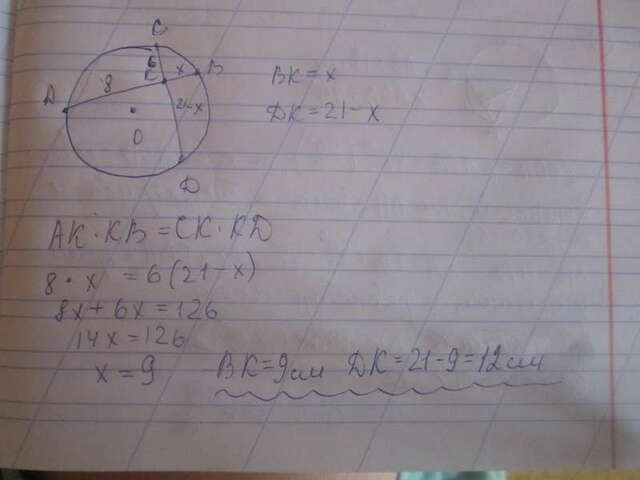 C
6
K x B
8
A
21-x
O
D
BK = x
DK = 21 - x
AK · KB = CK · KD
8 · x = 6(21-x)
8x + 6x = 126
14x = 126
x = 9
BK = 9 см DK = 21-9 = 12 см